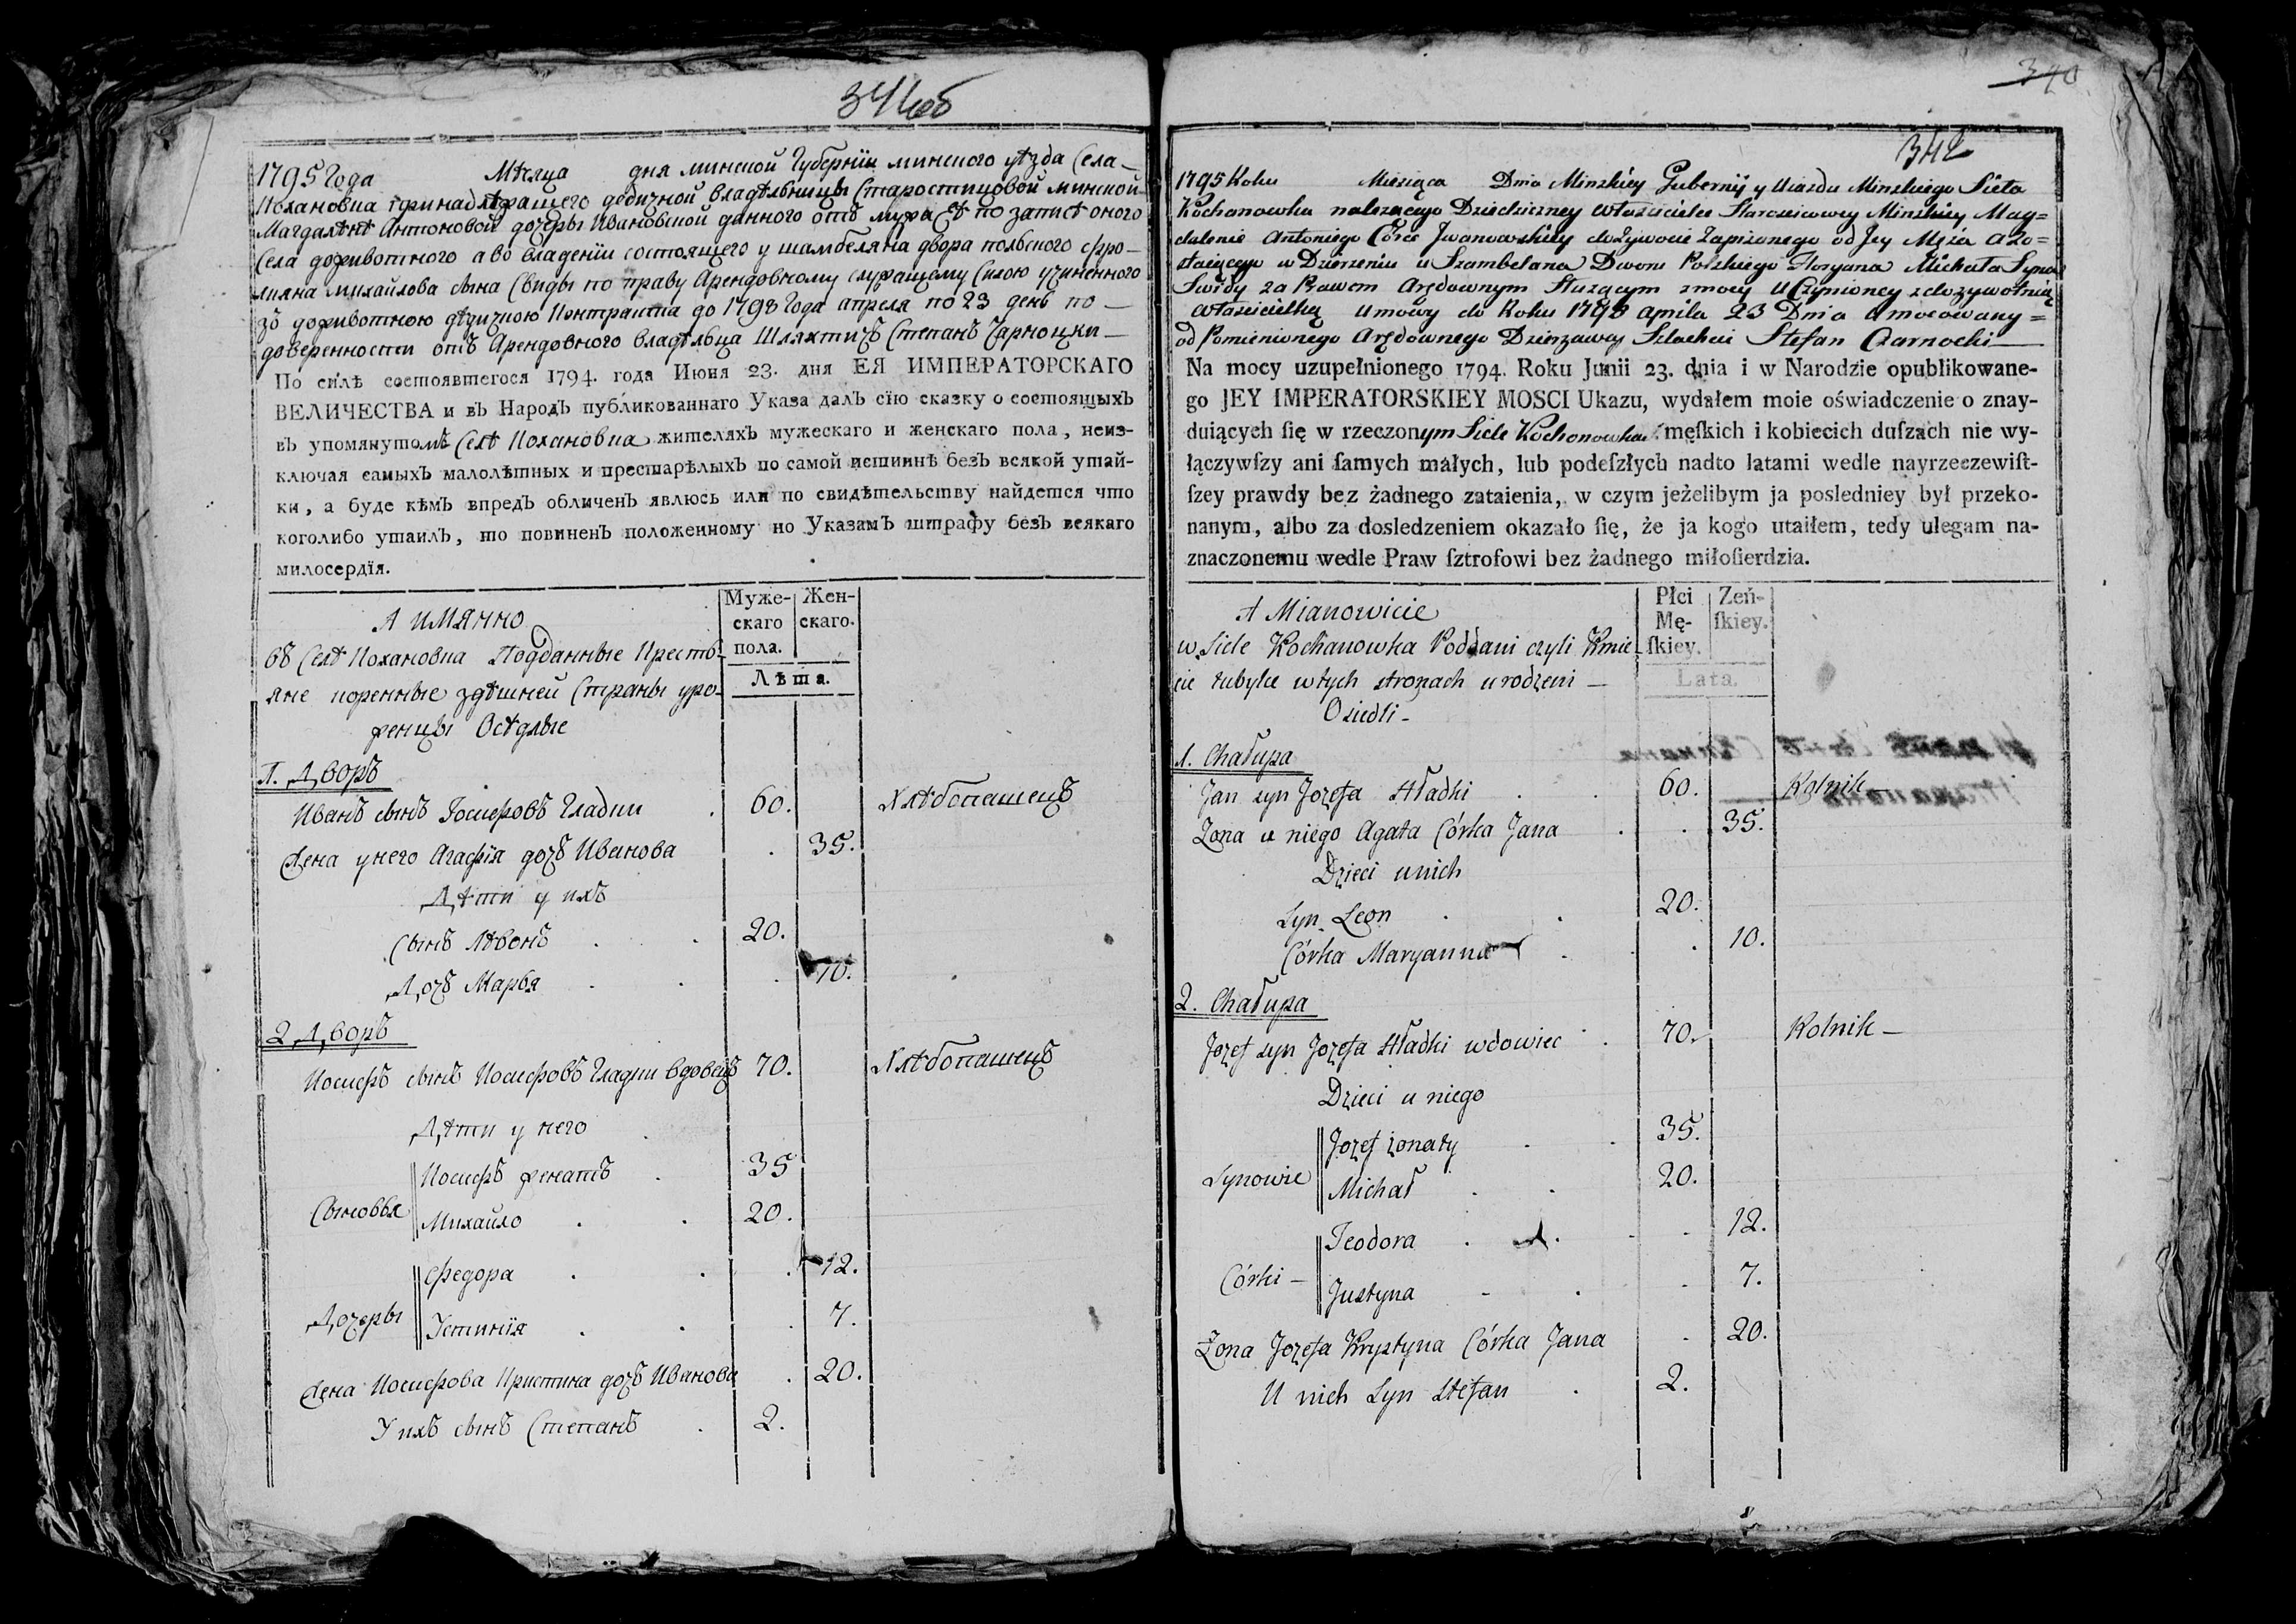 341 об
1795 Года Мѣсяца дня минской Губернїи минского уѣзда Села
Кохановка принадлѣжащего дедичной владѣльницы Старостицовой минской
Магдалѣнѣ Антоновой дочеры Ивановской данного отъ мужа Еѣ по записѣ оного
Села доживотного а во владении состоящего у шамбеляна двора польского Фло-
лияна Михайлова сына Свиды по праву Арендовному служащему Силою учиненного
зъ доживотною дѣдичною Контракта до 1798 Года апреля по 23 день по
доверенности отъ Арендовного владѣльца Шляхтичъ Степанъ Чарноцки
По силѣ состоявшегося 1794. года Июня 23. дня ЕЯ ИМПЕРАТОРСКАГО
ВЕЛИЧЕСТВА и въ Народъ публикованнаго Указа далъ сїю сказку о состоящыхъ
въ упомянутомъ Селѣ Кохановка жителяхъ мужескаго и женскаго пола, неиз-
ключая самыхъ малолѣтныхъ и престарѣлыхъ по самой истиннѣ безъ всякой утай-
ки, а буде кѣмъ впредъ обличенъ явлюсь или по свидѣтельству найдется что
коголибо утаилъ, то повиненъ положенному по Указамъ штрафу безъ всякаго
милосердїя.
А имянно
Муже-скаго пола.
Жен-скаго.
Лѣта.
въ Селѣ Кохановка Подданные Кресть-
яне коренные здѣшней Страны уро-
женцы Осѣдлые
1. Дворъ
Иванъ сынъ Іосифовъ Гладки . 60. Хлѣбопашецъ
Жена у него Агафїя дочъ Иванова . 35.
Дѣти у ихъ
Сынъ Лѣвонъ . . 20.
Дочъ Марья . . . 10.
2 Дворъ
Иосифъ сынъ Иосифовъ Гладки вдовецъ 70. Хлѣбопашецъ
Дѣти у него
Сыновья
Иосифъ женатъ . 35
Михайло . . 20.
Дочеры
Федора . . . 12.
Устинїя . . . 7.
Жена Иосифова Кристина дочъ Иванова . 20.
У ихъ сынъ Степанъ . 2.
340
342
1795 Roku Miesiąca Dnia Minskiey Gubernij y Uiazdu Minskiego Sieła
Kochanowka należącego Dziedziczney Właścicielce Starościcowey Minskiey Mag=
dalenie Antoniego Córce Jwanowskiey dożywocie Zapisonego od Jey Męża a zo=
staiącego w Dzierżeniu u Szambelana Dworu Polskiego Floryana Michała Syna
Swidy za Prawem Arędownym Służącym zmocy Uczynioney z dożywotnią
Właścicielką Umowy do Roku 1798 Aprila 23 Dnia Umocowany=
od Pomienionego Arędownego Dzierżawcy Szlachcic Stefan Czarnocki
Na mocy uzupełnionego 1794. Roku Junii 23. dnia i w Narodzie opublikowane-
go JEY IMPERATORSKIEY MOSCI Ukazu, wydałem moie oświadczenie o znay-
duiących ſię w rzeczonym Siele Kochonowka męſkich i kobiecich duſzach nie wy-
łączywſzy ani ſamych małych, lub podeſzłych nadto latami wedle nayrzeczewiſt-
ſzey prawdy bez żadnego zataienia, w czym jeżelibym ja posledniey był przeko-
nanym, albo za dosledzeniem okazało ſię, że ja kogo utaiłem, tedy ulegam na-
znaczonemu wedle Praw ſztrofowi bez żadnego miłoſierdzia.
A Mianowicie
Płci Mę-ſkiey.
Zeń-ſkiey.
Lata.
w Siele Kochanowka Poddani czyli Kmie
cie tubylce w tych stronach urodzeni
Osiedli
1. Chałupa
Jan syn Jozefa Hładki . . 60. Rolnik
Zona u niego Agata Córka Jana . . 35.
Dzieci unich
Syn Leon . . 20.
Córka Maryanna . . . 10.
2. Chałupa
Jozef syn Jozefa Hładki wdowiec . 70. Rolnik
Dzieci u niego
Synowie
Jozef żonaty . . 35.
Michał . . 20.
Córki
Teodora . . . 12.
Justyna . . 7.
Zona Jozefa Krystyna Córka Jana . 20.
U nich Syn Stefan . 2.